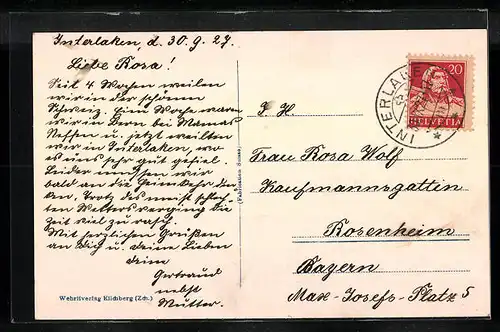 Interlaken, d. 30.9.27.
Liebe Rosa!
Seit 4 Wochen weilen
wir in der schönen
Schweiz. Eine Woche waren
wir in Bern bei Mamas
Neffen u. jetzt weilten
wir in Interlaken, wo
es uns sehr gut gefiel.
Leider müssen wir
bald an die Heimkehr den-
ken, trotz des meist schlech-
ten Wetters verging die
Zeit viel zu rasch.
Mit herzlichen Grüßen
an Dich u. deine Lieben
deine
Gertraud
nebst
Mutter.
Wehrliverlag Kilchberg (Zch.)
(Fabrication Suisse)
INTERLAKEN
20
HELVETIA
S. H.
Frau Rosa Wolf
Kaufmannsgattin
Rosenheim
Bayern
Max-Josefs-Platz 5